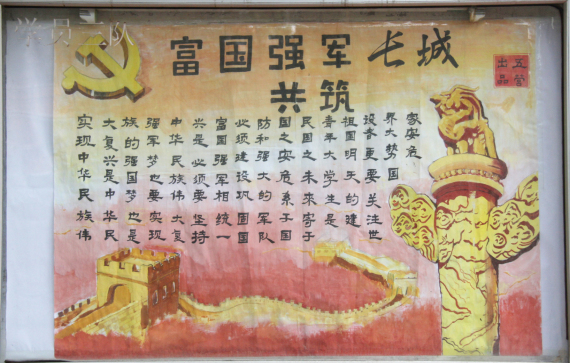 学员二队
富国强军 长城
共筑
五营
出品
实现中华民族伟
大复兴是中华民
族的强国梦也是
强军梦也要实现
中华民族伟大复
兴是必须要坚持
富国强军相统一
必须建设巩固国
防和强大的军队
国之安危系于国
民国之未来寄于
青年大学生是
祖国明天的建
设者更要关注世
界大势国
家安危